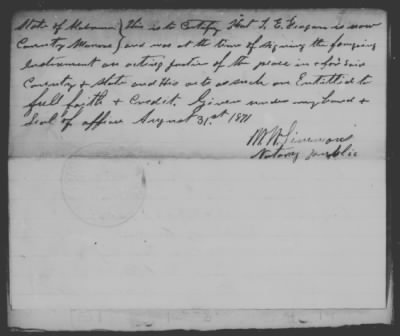 State of Alabama } This is to Certify That T. E. Feagan is now
County Monroe } and was at the time of signing the foregoing
Indorsment an acting justice of the peace in & for said
County & State and His acts as such are Entitled to
full faith & Credit. Given under my hand &
Seal of office August 31st 1871
M W
Notary public